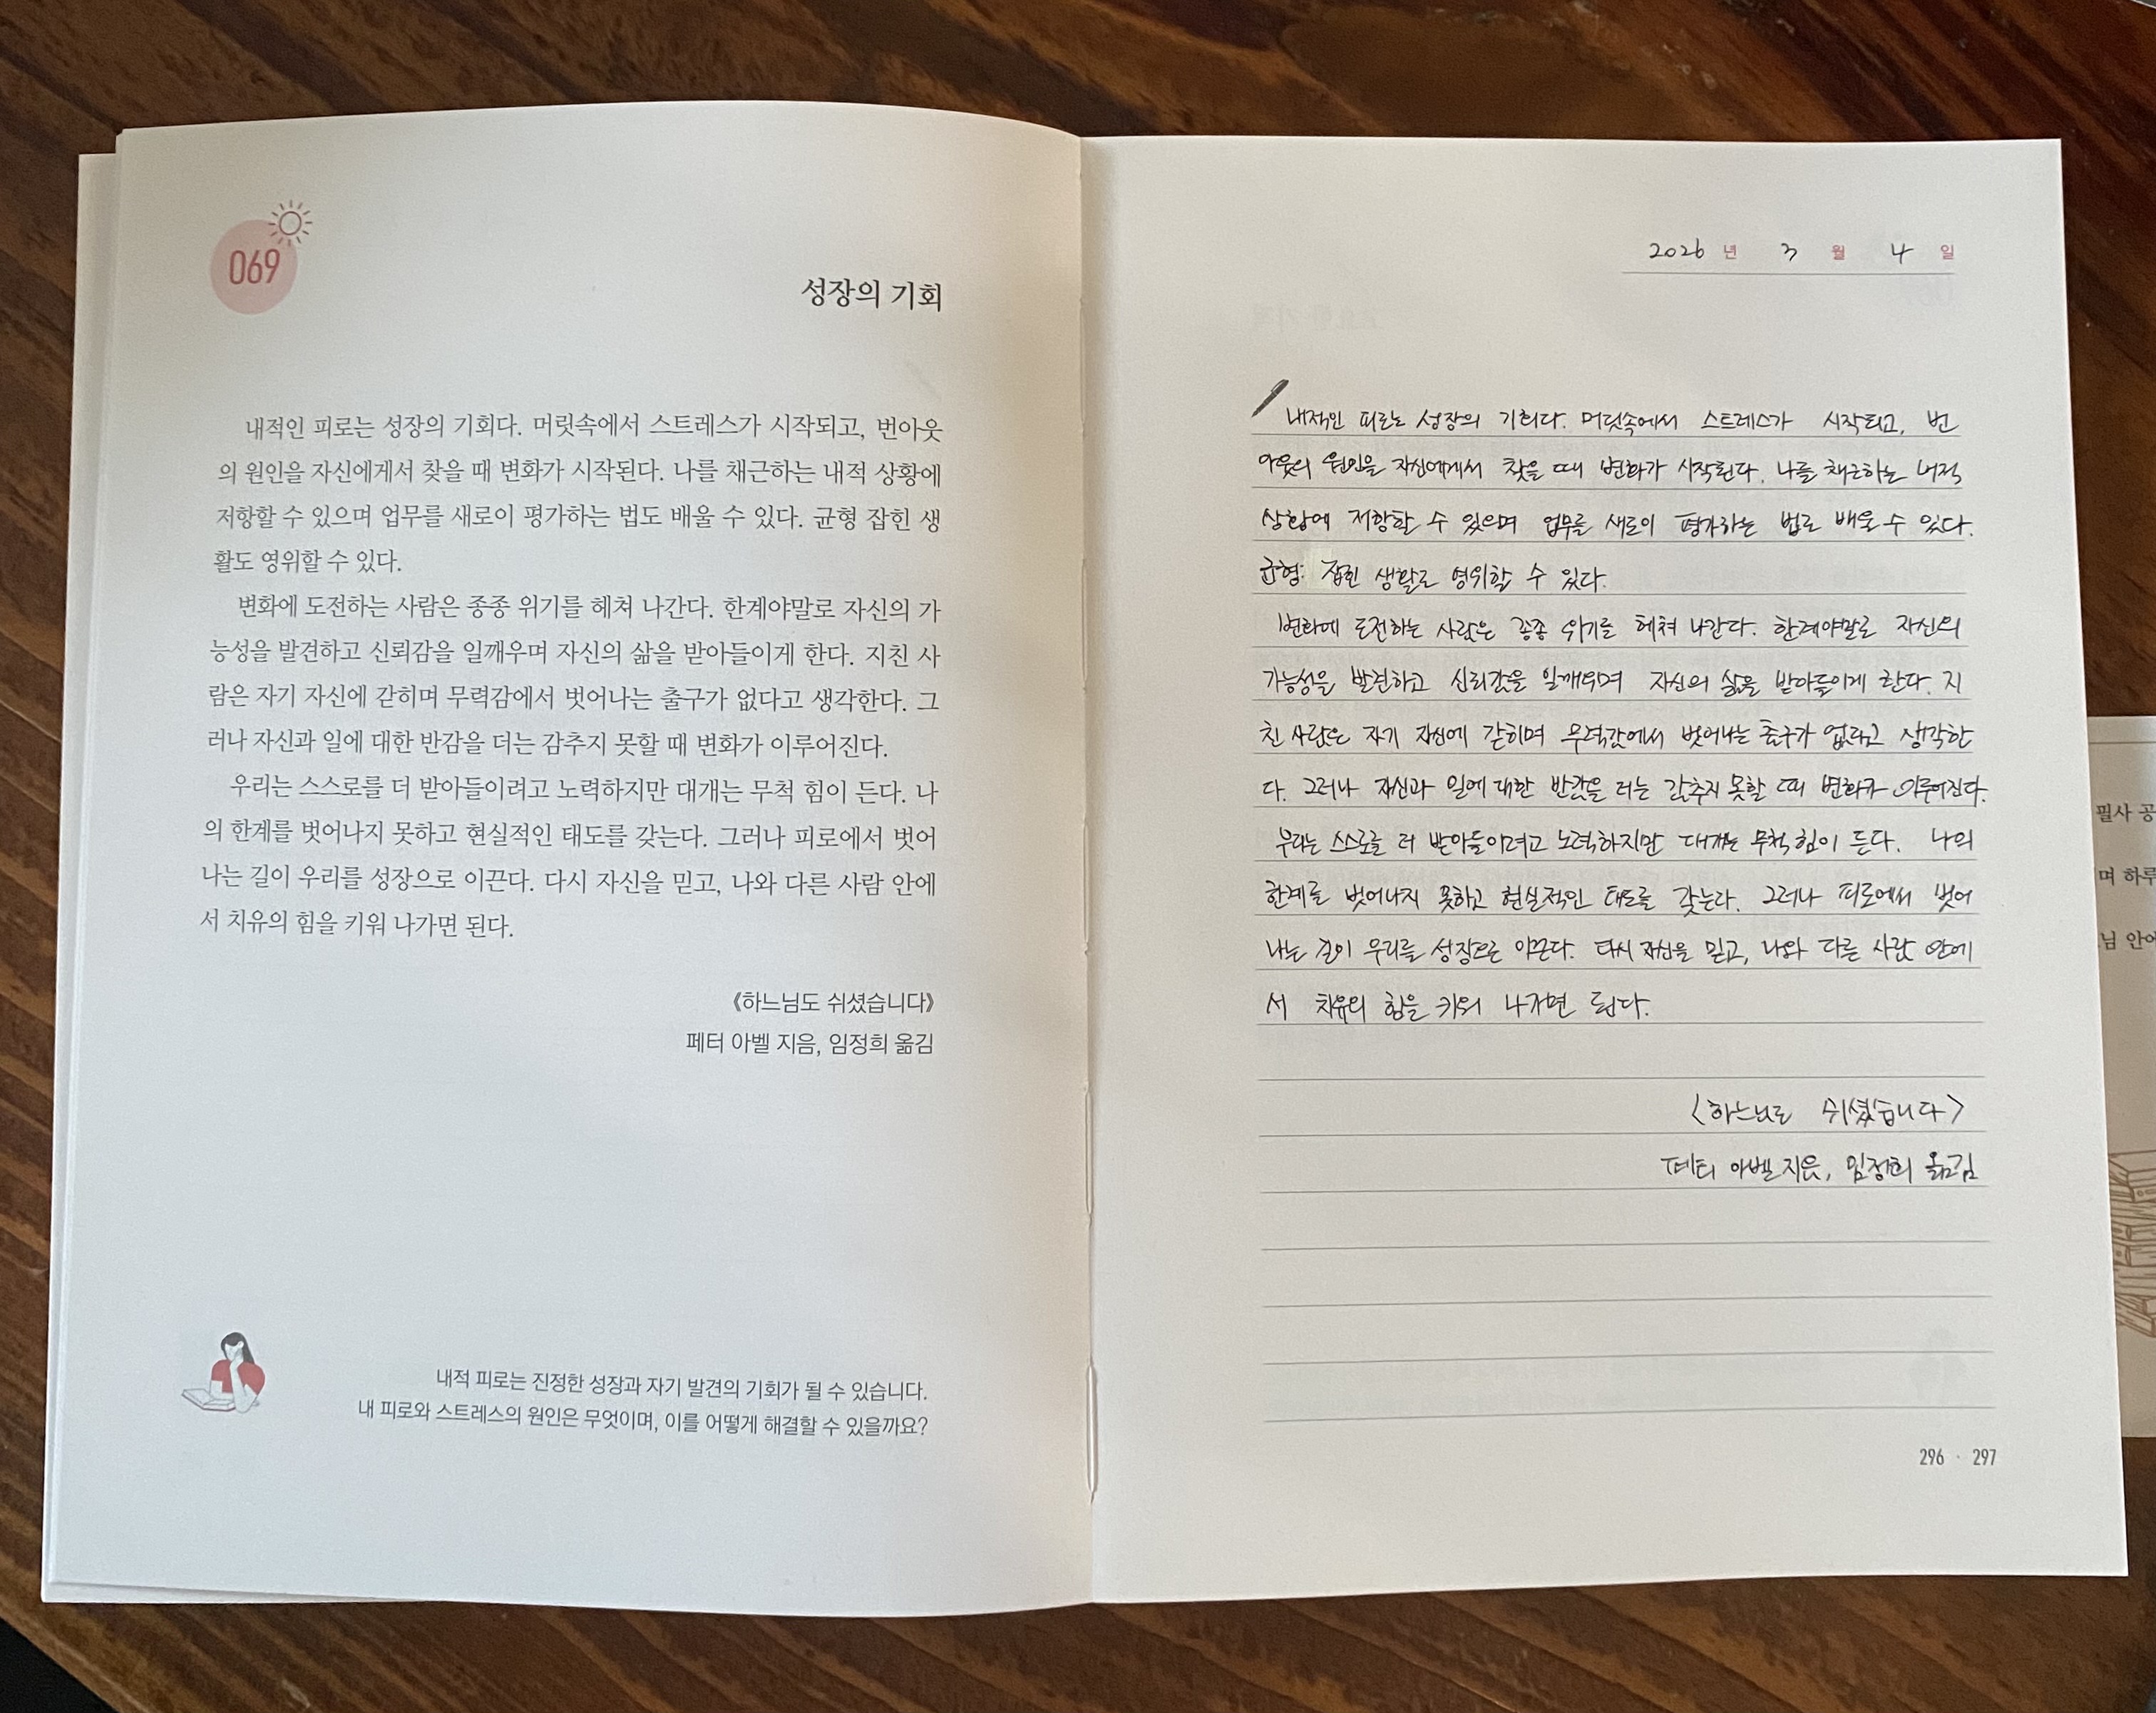 069
성장의 기회
내적인 피로는 성장의 기회다. 머릿속에서 스트레스가 시작되고, 번아웃
의 원인을 자신에게서 찾을 때 변화가 시작된다. 나를 채근하는 내적 상황에
저항할 수 있으며 업무를 새로이 평가하는 법도 배울 수 있다. 균형 잡힌 생
활도 영위할 수 있다.
변화에 도전하는 사람은 종종 위기를 헤쳐 나간다. 한계야말로 자신의 가
능성을 발견하고 신뢰감을 일깨우며 자신의 삶을 받아들이게 한다. 지친 사
람은 자기 자신에 갇히며 무력감에서 벗어나는 출구가 없다고 생각한다. 그
러나 자신과 일에 대한 반감을 더는 감추지 못할 때 변화가 이루어진다.
우리는 스스로를 더 받아들이려고 노력하지만 대개는 무척 힘이 든다. 나
의 한계를 벗어나지 못하고 현실적인 태도를 갖는다. 그러나 피로에서 벗어
나는 길이 우리를 성장으로 이끈다. 다시 자신을 믿고, 나와 다른 사람 안에
서 치유의 힘을 키워 나가면 된다.
《하느님도 쉬셨습니다》
페터 아벨 지음, 임정희 옮김
내적 피로는 진정한 성장과 자기 발견의 기회가 될 수 있습니다.
내 피로와 스트레스의 원인은 무엇이며, 이를 어떻게 해결할 수 있을까요?
2026 년 3 월 4 일
내적인 피로는 성장의 기회다. 머릿속에서 스트레스가 시작되고, 번
아웃의 원인을 자신에게서 찾을 때 변화가 시작된다. 나를 채근하는 내적
상황에 저항할 수 있으며 업무를 새로이 평가하는 법도 배울 수 있다.
균형 잡힌 생활도 영위할 수 있다.
변화에 도전하는 사람은 종종 위기를 헤쳐 나간다. 한계야말로 자신의
가능성을 발견하고 신뢰감을 일깨우며 자신의 삶을 받아들이게 한다. 지
친 사람은 자기 자신에 갇히며 무력감에서 벗어나는 출구가 없다고 생각한
다. 그러나 자신과 일에 대한 반감을 더는 감추지 못할 때 변화가 이루어진다.
우리는 스스로를 더 받아들이려고 노력하지만 대개는 무척 힘이 든다. 나의
한계를 벗어나지 못하고 현실적인 태도를 갖는다. 그러나 피로에서 벗어
나는 길이 우리를 성장으로 이끈다. 다시 자신을 믿고, 나와 다른 사람 안에
서 치유의 힘을 키워 나가면 된다.
<하느님도 쉬셨습니다>
페터 아벨 지음, 임정희 옮김
296 · 297
필사 공
며 하루
님 안에